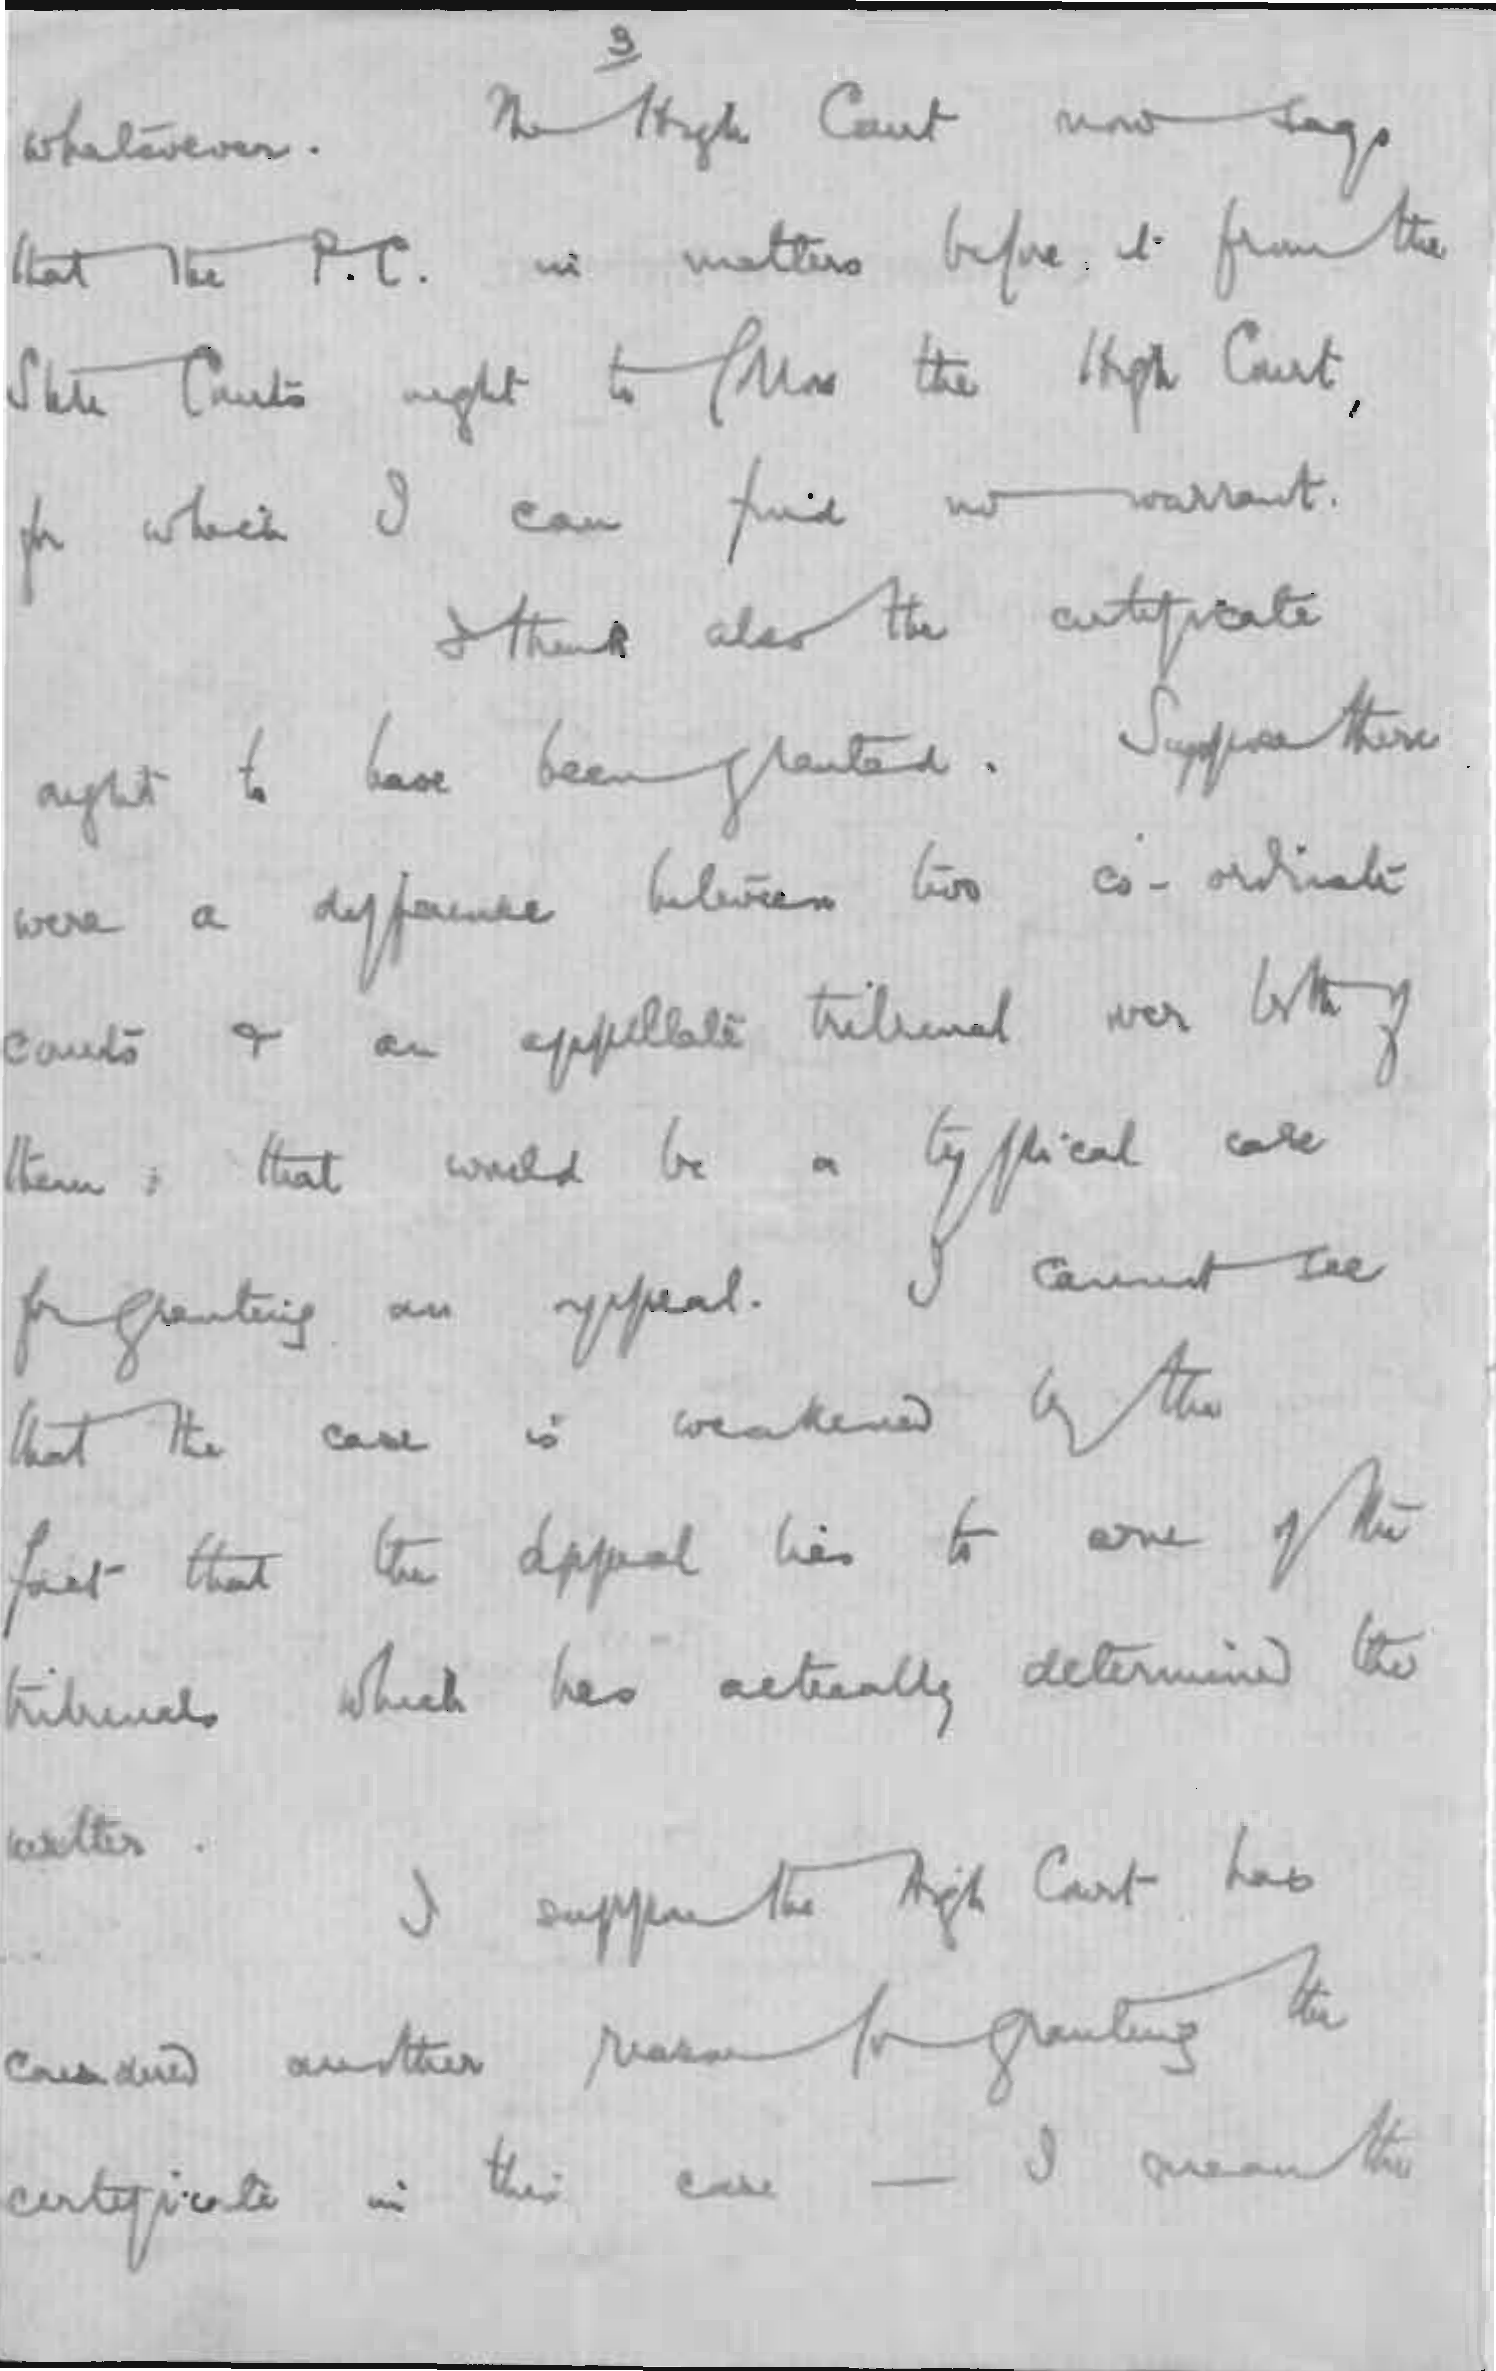 3
whatsoever. The High Court now says
that the P.C. in matters before it from the
State Courts ought to follow the High Court,
for which I can find no warrant.
I think also the certificate
ought to have been granted. Suppose there
were a difference between two co-ordinate
courts & an appellate tribunal over both of
them; that would be a typical case
for granting an appeal. I cannot see
that the case is weakened by the
fact that the appeal lies to one of the
tribunals which has actually determined the
matter.
I suppose the High Court has
considered another reason for granting the
certificate in this case — I mean the